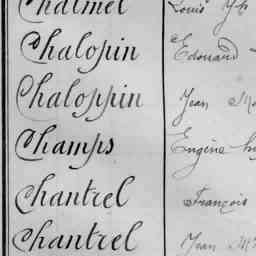 Chalmel Louis
Chalopin Edouard
Chaloppin Jean
Champs Eugène
Chantrel François
Chantrel Jean